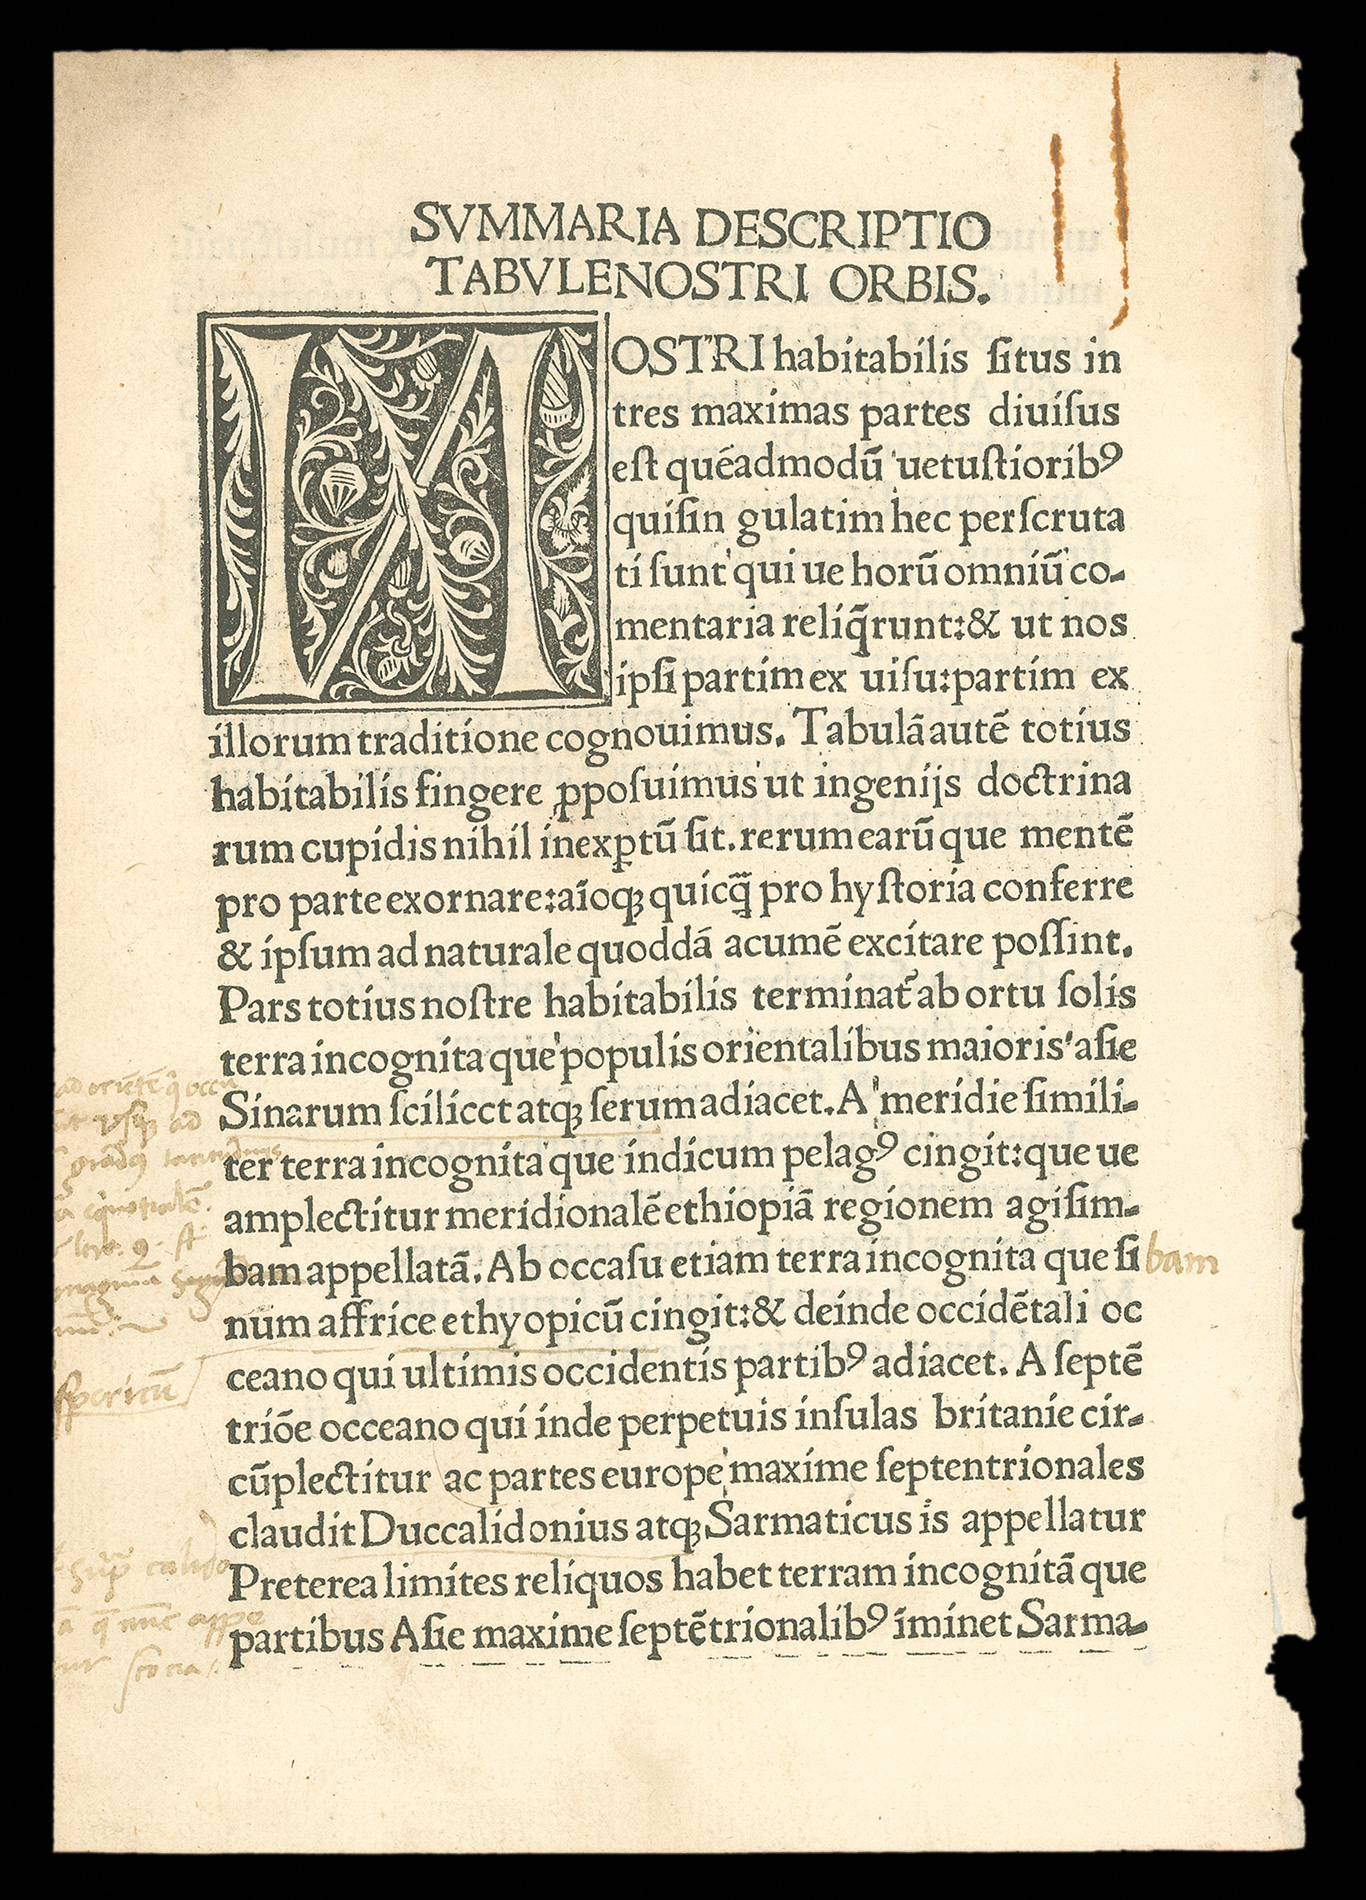 SVMMARIA DESCRIPTIO
TABVLENOSTRI ORBIS.
NOSTRI habitabilis ſitus in
tres maximas partes diuiſus
eſt quēadmodū uetuſtioribꝰ
quiſin gulatim hec perſcruta
ti ſunt qui ue horū omniū co-
mentaria reliq̄runt:& ut nos
ipſi partim ex uiſu:partim ex
illorum traditione cognouimus. Tabulā autē totius
habitabilis fingere ꝓpoſuimus ut ingenijs doctrina
rum cupidis nihil inexꝑtū ſit. rerum earū que mentē
pro parte exornare:aīoqꝫ quicq̄ pro hyſtoria conferre
& ipſum ad naturale quoddā acumē excitare poſſint.
Pars totius noſtre habitabilis terminat̄ ab ortu ſolis
terra incognita que populis orientalibus maioris aſie
Sinarum ſcilicct atqꝫ ſerum adiacet. A meridie ſimili-
ter terra incognita que indicum pelagꝰ cingit:que ue
amplectitur meridionalē ethiopiā regionem agiſim-
bam appellatā. Ab occaſu etiam terra incognita que ſi bam
num affrice ethyopicū cingit:& deinde occidētali oc
ceano qui ultimis occidentis partibꝰ adiacet. A ſeptē
triōe occeano qui inde perpetuis inſulas britanie cir-
cūplectitur ac partes europe maxime ſeptentrionales
claudit Duccalidonius atqꝫ Sarmaticus is appellatur
Preterea limites reliquos habet terram incognitā que
partibus Aſie maxime ſeptētrionalibꝰ īminet Sarma-
ad oriētē
usqꝫ ad